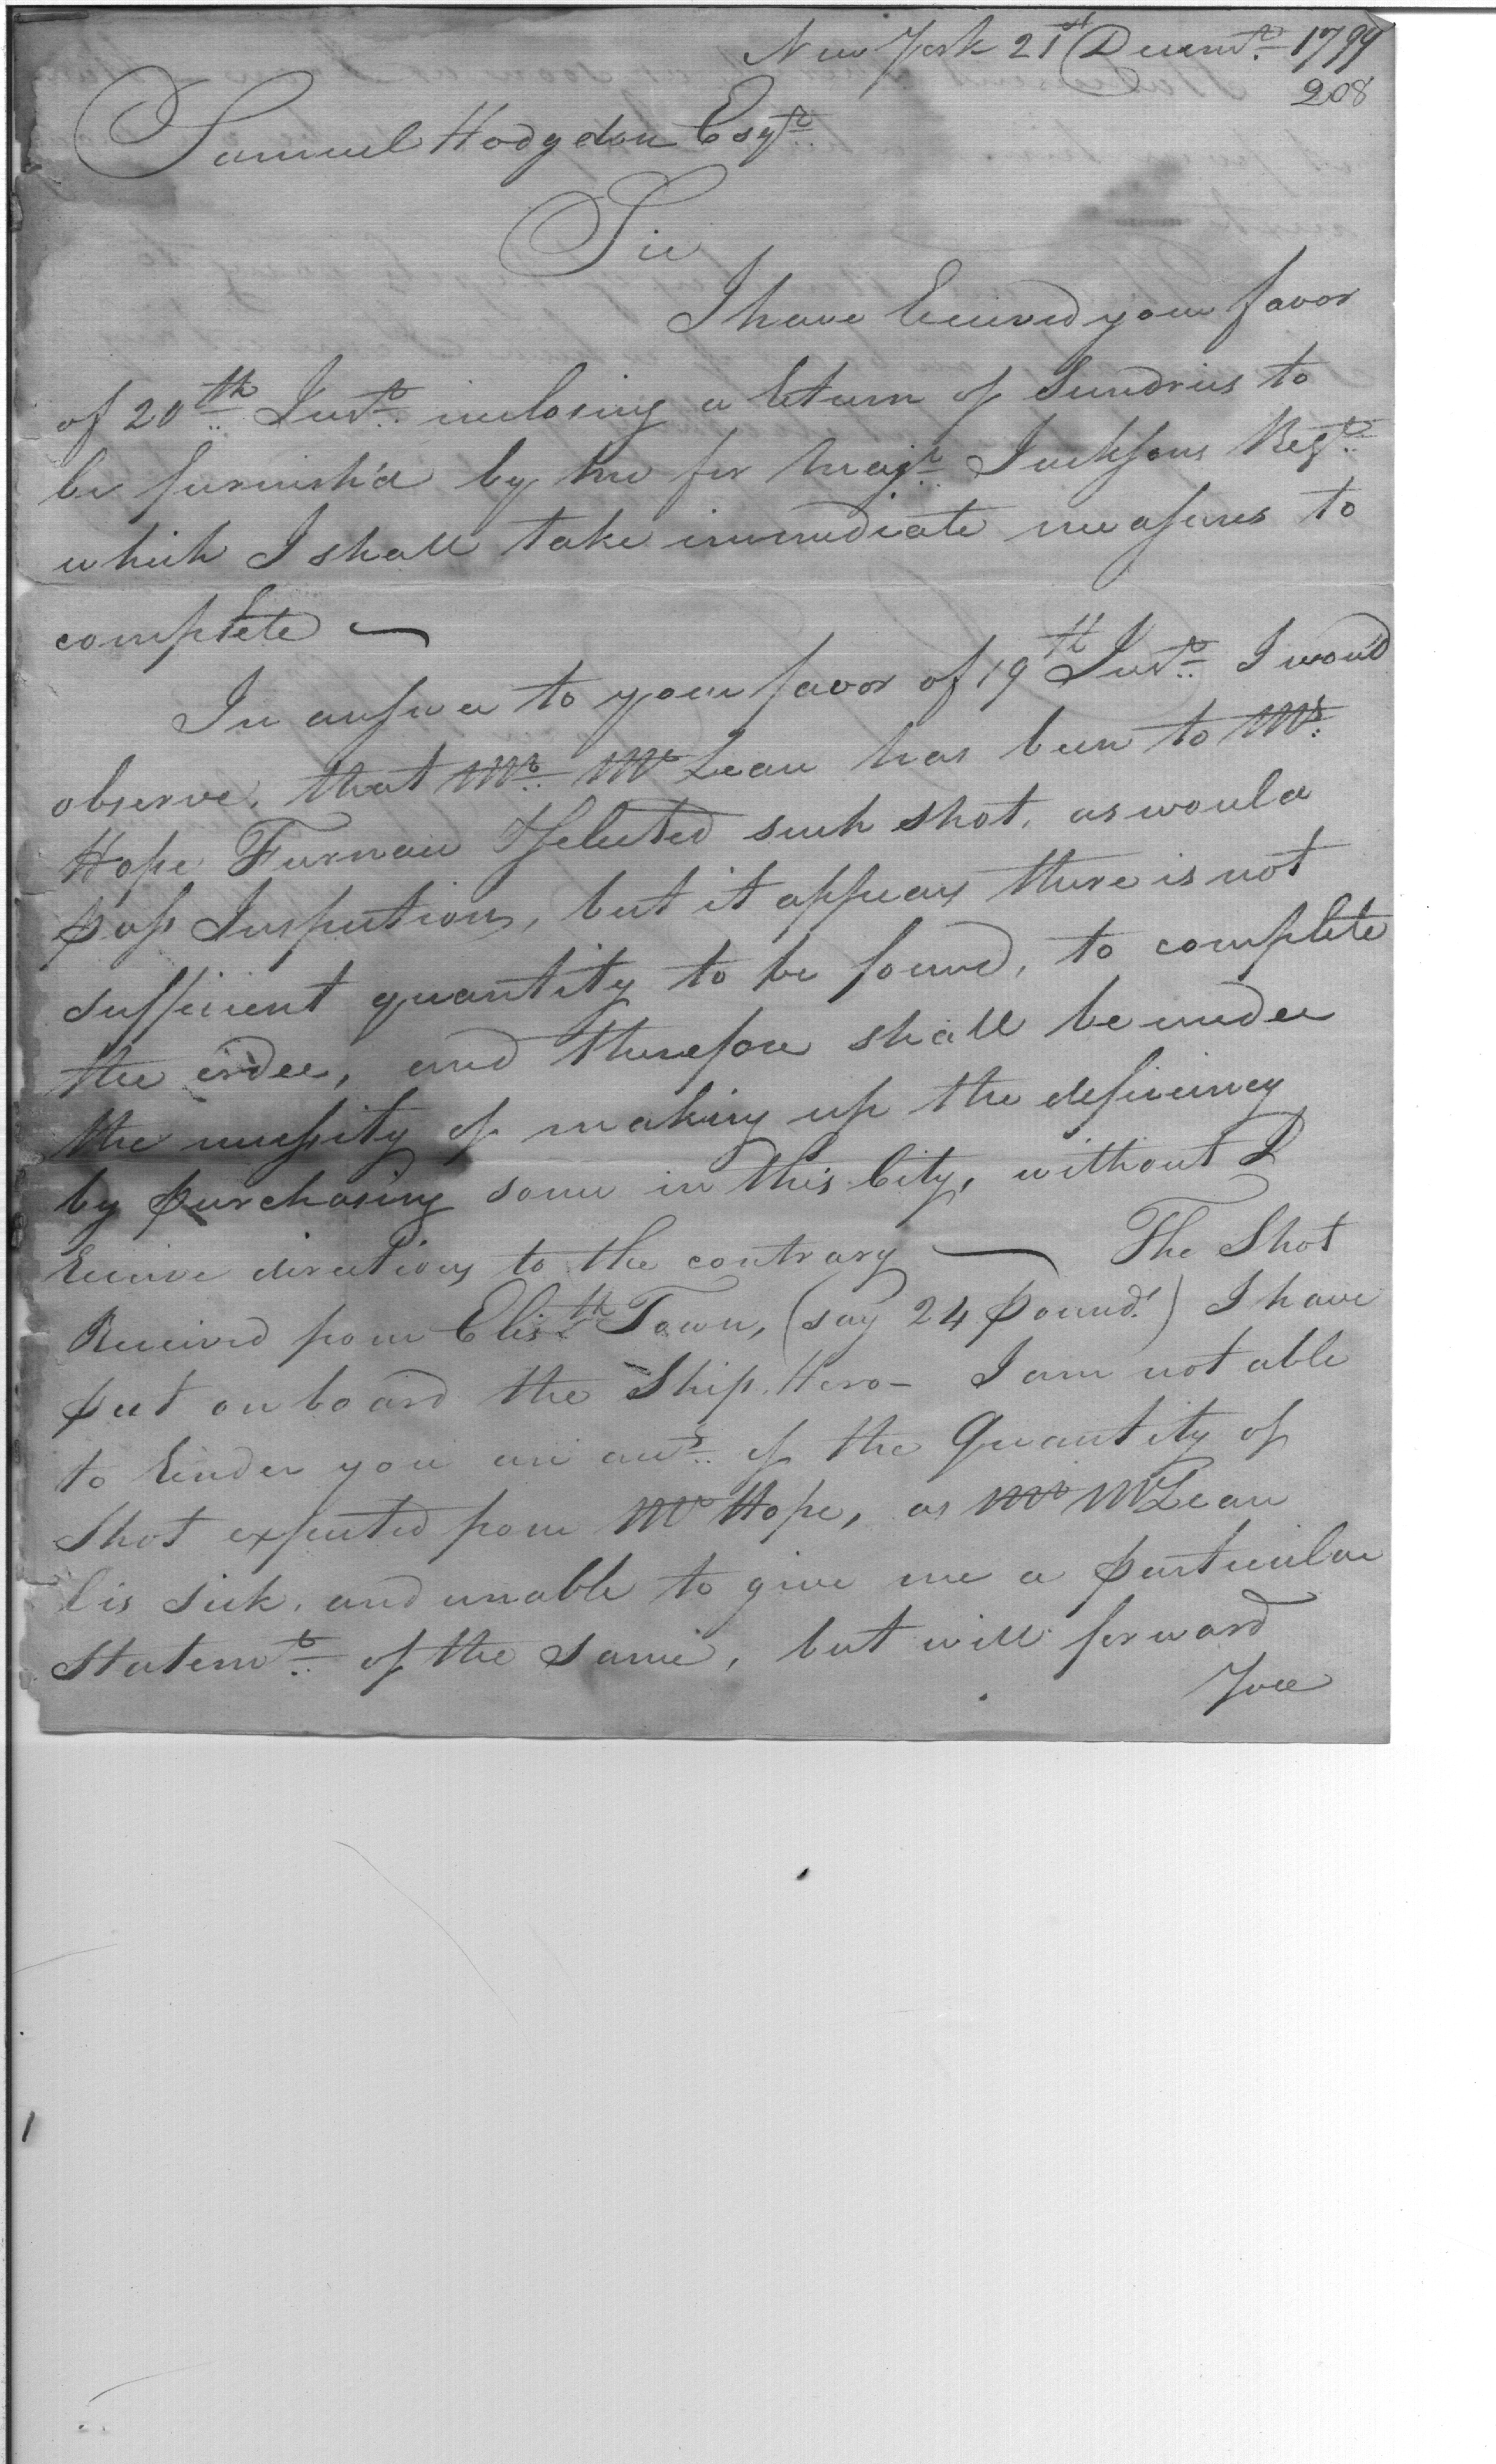 New York 21st Decemr. 1799
208
Samuel Hodgdon Esqr.
Sir
I have Received your favor
of 20th Inst. inclosing a Return of Sundries to
be furnish'd by me for Majr. Jacksons Regt.
which I shall take immediate measures to
complete —
In answer to your favor of 19th Inst. I wou'd
observe, that Mr. McLean has been to Mr.
Hope Furnace & Selected such shot, as would
pass Inspection, but it appears there is not
sufficient quantity to be found, to complete
the order, and therefore shall be under
the necessity of making up the deficiency
by purchasing some in this City, without I
Receive directions to the contrary — The Shot
Received from Elizth Town, (say 24 pounds.) I have
put on board the Ship Hero - I am not able
to Render you an acct. of the Quantity of
Shot expected from Mr Hope, as Mr McLean
is sick, and unable to give me a particular
Statemt. of the same, but will forward
You